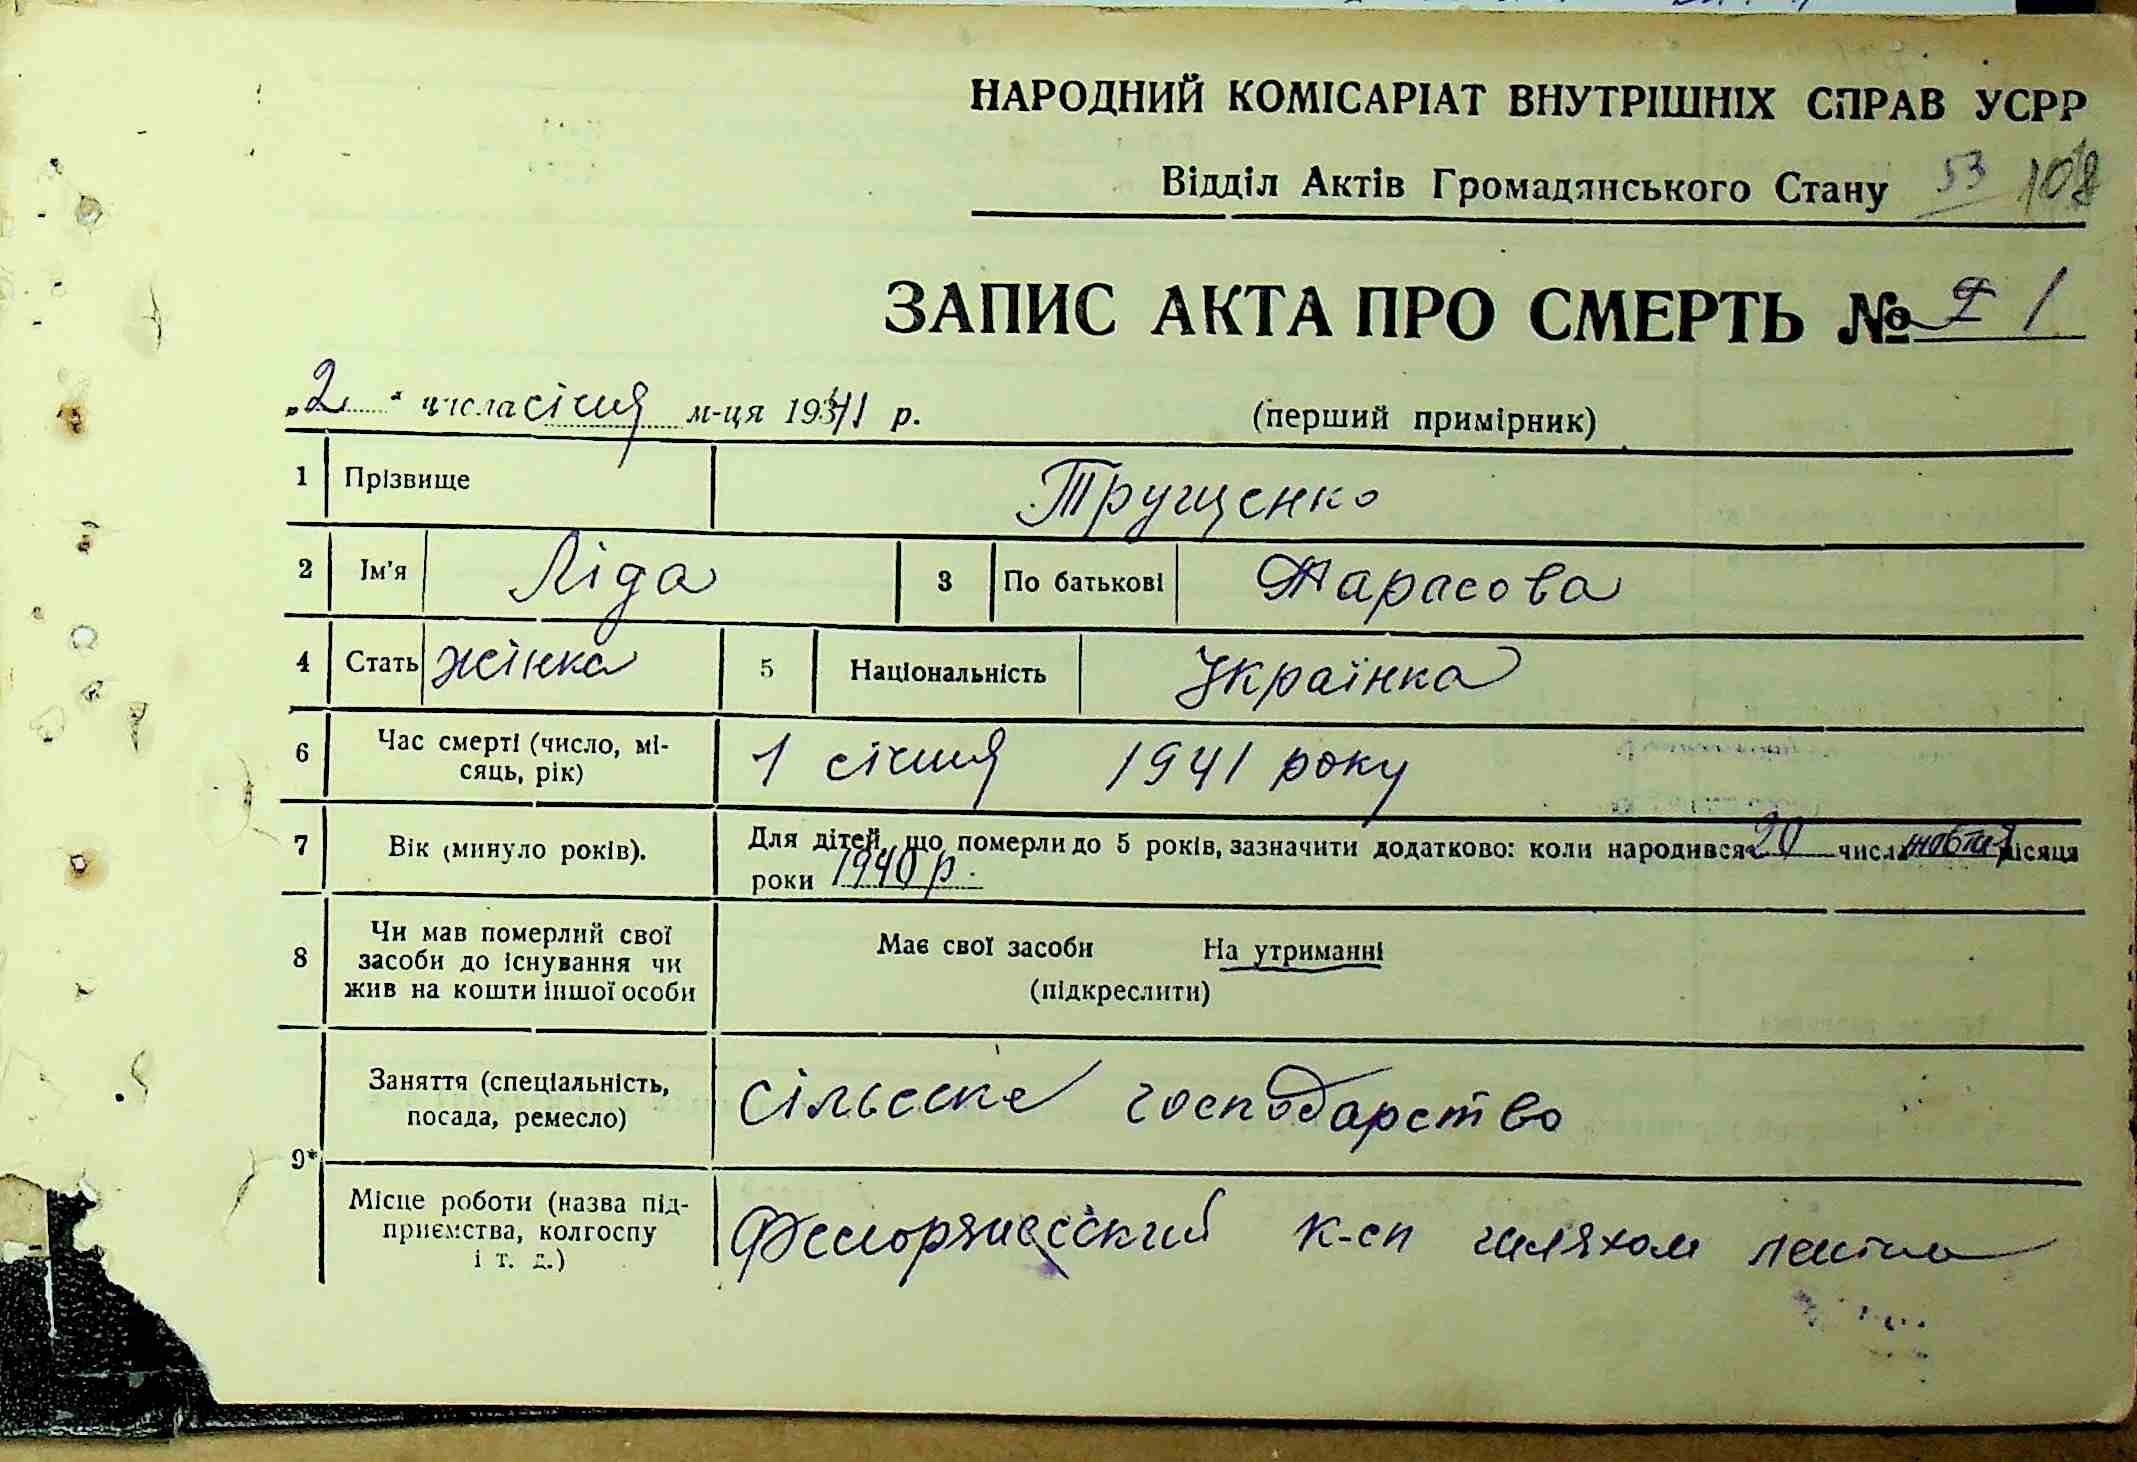 НАРОДНИЙ КОМІСАРІАТ ВНУТРІШНІХ СПРАВ УСРР
Відділ Актів Громадянського Стану 53 108
ЗАПИС АКТА ПРО СМЕРТЬ № 1
„2“ числа січня м-ця 1941 р. (перший примірник)
1 Прізвище Трущенко
2 Ім'я Ліда 3 По батькові Тарасова
4 Стать жінка 5 Національність Українка
6 Час смерті (число, мі-
сяць, рік) 1 січня 1941 року
7 Вік (минуло років). Для дітей, що померли до 5 років, зазначити додатково: коли народився 20 числа жовтня місяця
роки 1940 р.
8 Чи мав померлий свої
засоби до існування чи
жив на кошти іншої особи
Має свої засоби На утриманні
(підкреслити)
9* Заняття (спеціальність,
посада, ремесло) сільске господарство
Місце роботи (назва під-
приємства, колгоспу
і т. д.) к-сп шляхом леніна